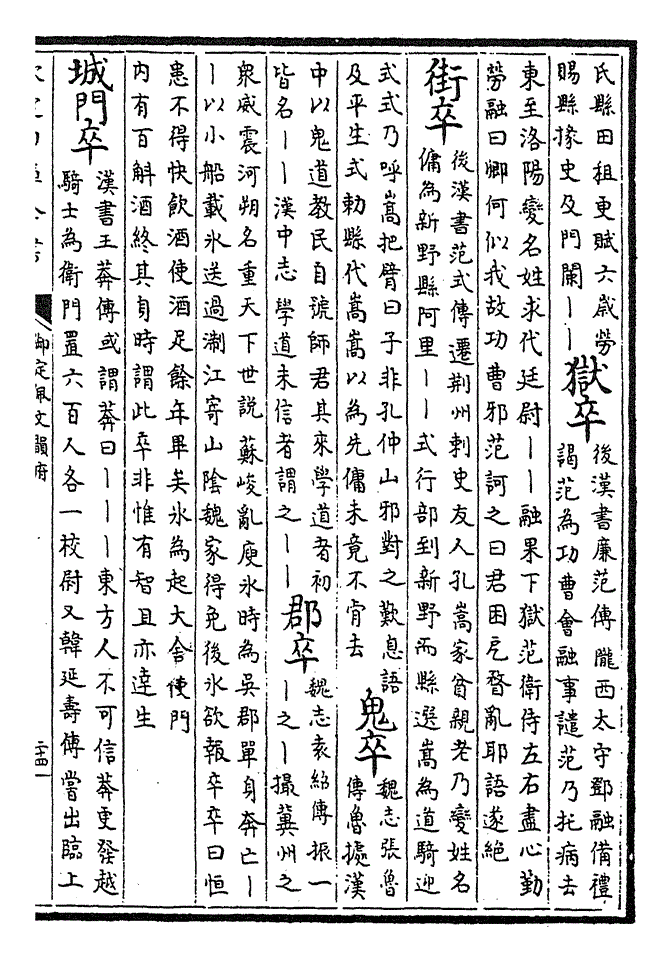 氏縣田租更賦六歲勞
賜縣掾史及門闌丨丨
獄卒
後漢書廉范傳隴西太守鄧融備禮
謁范為功曹會融事譴范乃托病去
東至洛陽變名姓求代廷尉丨丨融果下獄范衛侍左右盡心勤
勞融曰卿何似我故功曹邪范訶之曰君困厄瞀亂耶語遂絶
街卒
後漢書范式傳遷荆州刺史友人孔嵩家貧親老乃變姓名
傭為新野縣阿里丨丨式行部到新野而縣選嵩為道騎迎
式式乃呼嵩把臂曰子非孔仲山邪對之歎息語
及平生式勅縣代嵩嵩以為先傭未竟不肯去
鬼卒
魏志張魯
傳魯據漢
中以鬼道教民自號師君其來學道者初
皆名丨丨漢中志學道未信者謂之丨丨
郡卒
魏志袁紹傳振一
丨之丨撮冀州之
衆威震河朔名重天下世説蘇峻亂庾氷時為吳郡單身奔亡丨
丨以小船載氷送過淛江寄山陰魏家得免後氷欲報卒卒曰恒
患不得快飲酒使酒足餘年畢矣氷為起大舍使門
内有百斛酒終其身時謂此卒非惟有智且亦達生
城門卒
漢書王莽傳或謂莽曰丨丨丨東方人不可信莽更發越
騎士為衛門置六百人各一校尉又韓延壽傳嘗出臨上
御定佩文韻府